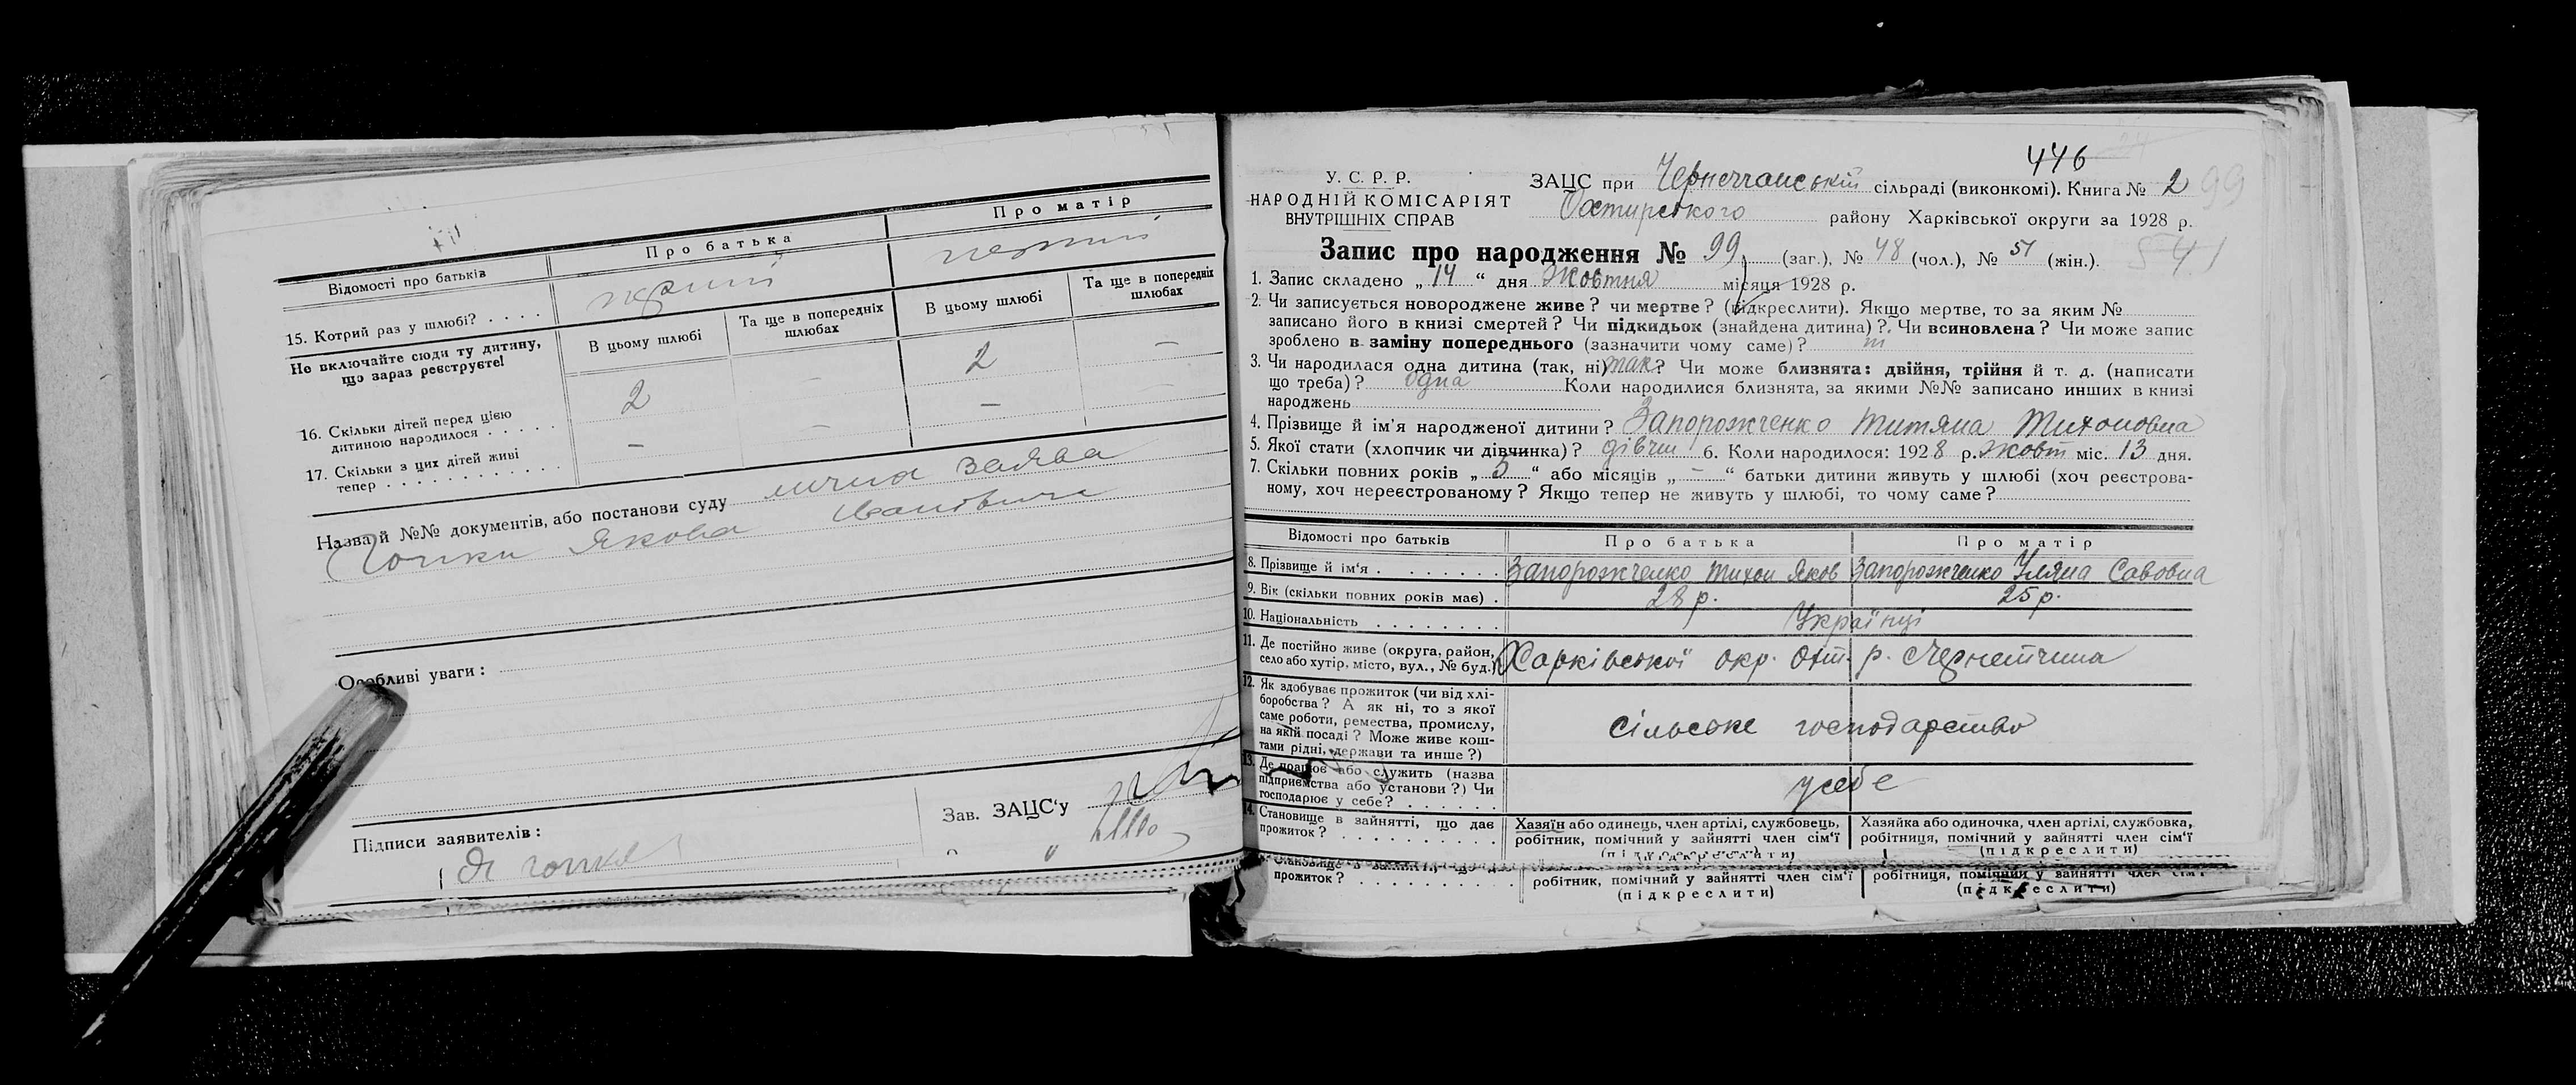 Відомості про батьків
Про батька
Про матір
15. Котрий раз у шлюбі? . . . .
Не включайте сюди ту дитину,
що зараз реєструєте!
В цьому шлюбі
Та ще в попередніх
шлюбах
В цьому шлюбі
Та ще в попередніх
шлюбах
16. Скільки дітей перед цією
дитиною народилося . . . . .
2
–
2
–
17. Скільки з цих дітей живі
тепер . . . . . . . . . .
–
–
–
–
Назва й №№ документів, або постанови суду
заява
Якова Івановича
Особливі уваги:
Підписи заявителів:
Зав. ЗАЦС'у
446
У. С. Р. Р.
НАРОДНІЙ КОМІСАРІЯТ
ВНУТРІШНІХ СПРАВ
ЗАЦС при Чернеччанській сільраді (виконкомі). Книга № 2 99
Охтирського району Харківської округи за 1928 р.
Запис про народження № 99 (заг.), № 48 (чол.), № 51 (жін.).
1. Запис складено „ 14 “ дня Жовтня місяця 1928 р.
2. Чи записується новороджене живе? чи мертве? (підкреслити). Якщо мертве, то за яким №
записано його в книзі смертей? Чи підкидьок (знайдена дитина)? Чи всиновлена? Чи може запис
зроблено в заміну попереднього (зазначити чому саме)?
3. Чи народилася одна дитина (так, ні) так? Чи може близнята: двійня, трійня й т. д. (написати
що треба)? одна Коли народилися близнята, за якими №№ записано инших в книзі
народжень
4. Прізвище й ім'я народженої дитини? Запорожченко Титяна Тихоновна
5. Якої стати (хлопчик чи дівчинка)? дівчи 6. Коли народилося: 1928 р. Жовт міс. 13 дня.
7. Скільки повних років „ 5 “ або місяців „ – “ батьки дитини живуть у шлюбі (хоч реєстрова-
ному, хоч нереєстрованому? Якщо тепер не живуть у шлюбі, то чому саме?
Відомості про батьків
Про батька
Про матір
8. Прізвище й ім'я . . . . . . . .
Запорожченко Тихон Яков
Запорожченко Уляна Савовна
9. Вік (скільки повних років має) .
28 р.
25 р.
10. Національність . . . . . . . .
Українці
11. Де постійно живе (округа, район,
село або хутір, місто, вул., № буд.)
Харківської окр. Охт. р. Чернетчина
12. Як здобуває прожиток (чи від хлі-
боробства? А як ні, то з якої
саме роботи, ремества, промислу,
на якій посаді? Може живе кош-
тами рідні, держави та инше?)
сільське господарство
13. Де працює або служить (назва
підприємства або установи?) Чи
господарює у себе? . . . . . .
у себе
14. Становище в зайнятті, що дає
прожиток? . . . . . . . . . .
Хазяїн або одинець, член артілі, службовець,
робітник, помічний у зайнятті член сім'ї
(підкреслити)
Хазяйка або одиночка, член артілі, службовка,
робітниця, помічний у зайнятті член сім'ї
(підкреслити)
прожиток? . . . . . . . . . .
робітник, помічний у зайнятті член сім'ї
(підкреслити)
робітниця, помічний у зайнятті член сім'ї
(підкреслити)